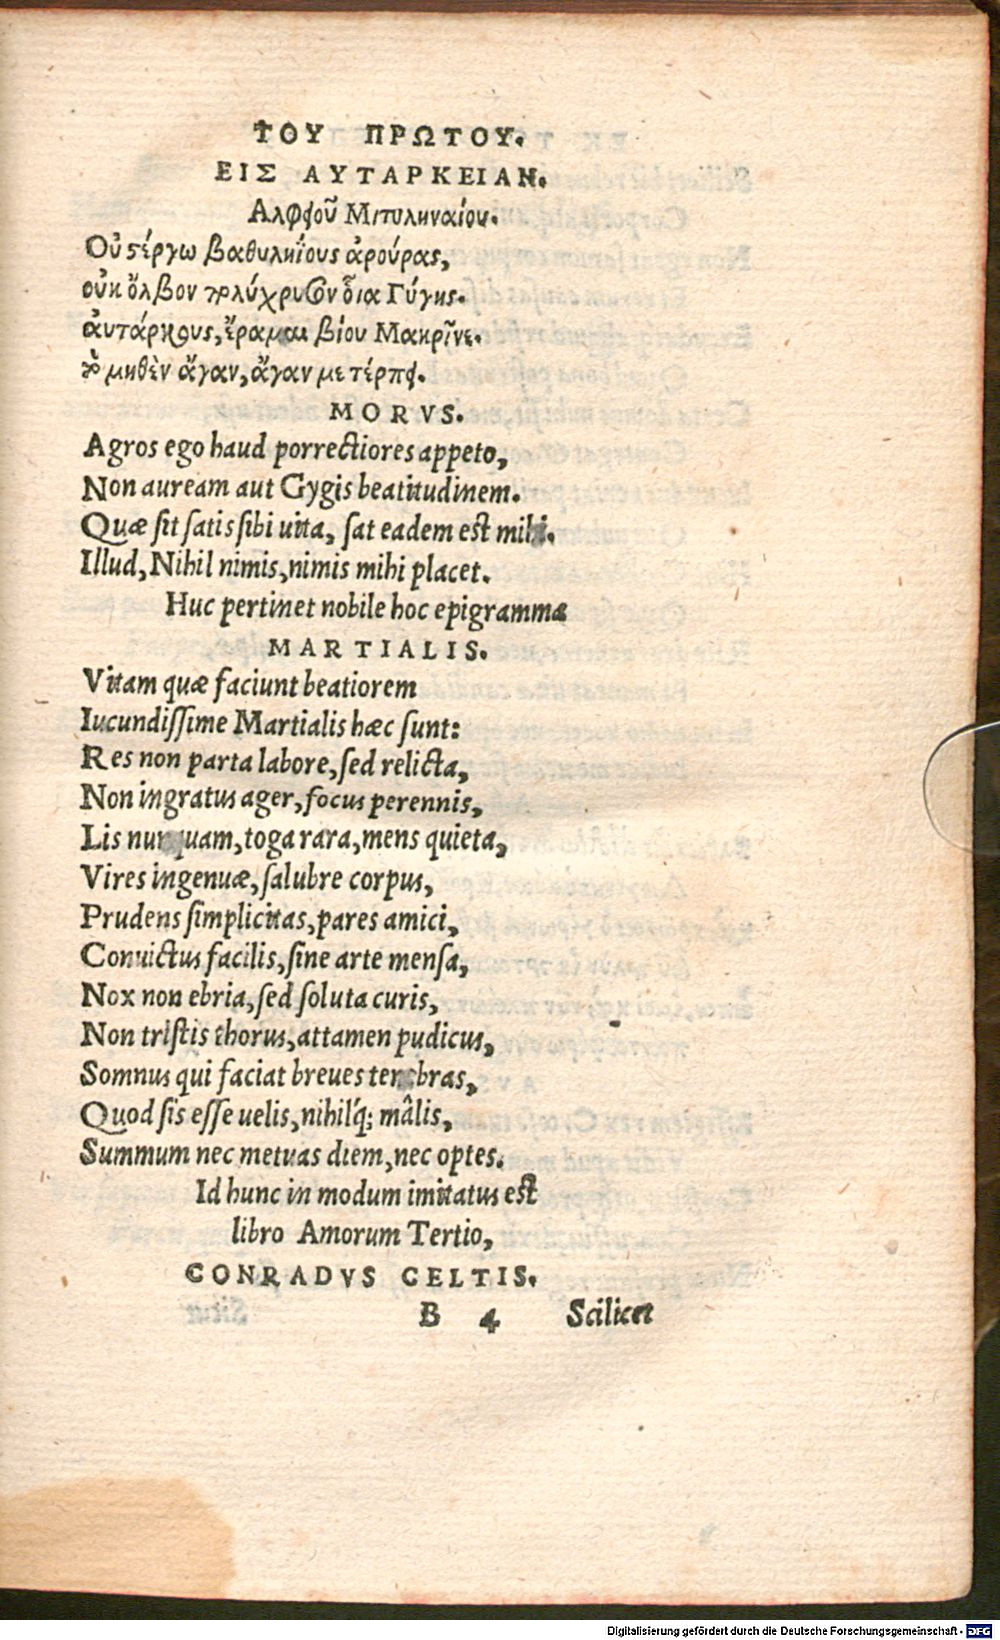 ΤΟΥ ΠΡΩΤΟΥ.
ΕΙΣ ΑΥΤΑΡΚΕΙΑΝ.
Αλφφοῦ Μιτυληναίου.
Οὐ στέργω βαθυληΐους ἀρούρας,
οὐκ ὄλβον πολύχρυσον οἷα Γύγης.
ἀυτάρκους, ἔραμαι βίου Μακρῖνε.
τὸ μηθὲν ἄγαν, ἄγαν με τέρπει.
MORVS.
Agros ego haud porrectiores appeto,
Non auream aut Gygis beatitudinem.
Quæ sit satis sibi uita, sat eadem est mihi.
Illud, Nihil nimis, nimis mihi placet.
Huc pertinet nobile hoc epigramma
MARTIALIS.
Vitam quæ faciunt beatiorem
Iucundissime Martialis hæc sunt:
Res non parta labore, sed relicta,
Non ingratus ager, focus perennis,
Lis nunquam, toga rara, mens quieta,
Vires ingenuæ, salubre corpus,
Prudens simplicitas, pares amici,
Conuictus facilis, sine arte mensa,
Nox non ebria, sed soluta curis,
Non tristis thorus, attamen pudicus,
Somnus qui faciat breues tenebras,
Quod sis esse uelis, nihilq́; mâlis,
Summum nec metuas diem, nec optes.
Id hunc in modum imitatus est
libro Amorum Tertio,
CONRADVS CELTIS.
B 4 Scilicet
Digitalisierung gefördert durch die Deutsche Forschungsgemeinschaft - DFG